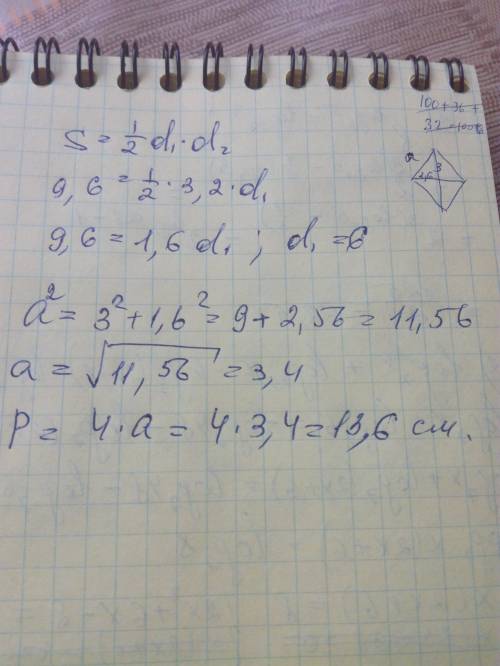 S = 1/2 d₁·d₂
9,6 = 1/2 · 3,2 · d₁
9,6 = 1,6 d₁ ; d₁ = 6
a² = 3² + 1,6² = 9 + 2,56 = 11,56
a = √11,56 = 3,4
P = 4·a = 4·3,4 = 13,6 см.
100+36+
a
3
1,6